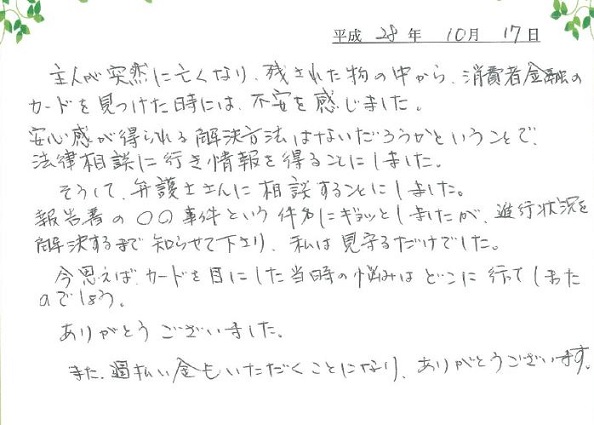 平成 28 年 10月 17日
主人が突然に亡くなり、残された物の中から、消費者金融の
カードを見つけた時には、不安を感じました。
安心感が得られる解決方法はないだろうかということで、
法律相談に行き情報を得ることにしました。
そうして、弁護士さんに相談することにしました。
報告書の〇〇事件という件名にギョッとしましたが、進行状況を
解決するまで知らせて下さり、私は見守るだけでした。
今思えば、カードを目にした当時の悩みはどこに行てしまた
のでしょう。
ありがとうございました。
また、過払い金もいただくことになり、ありがとうございます。